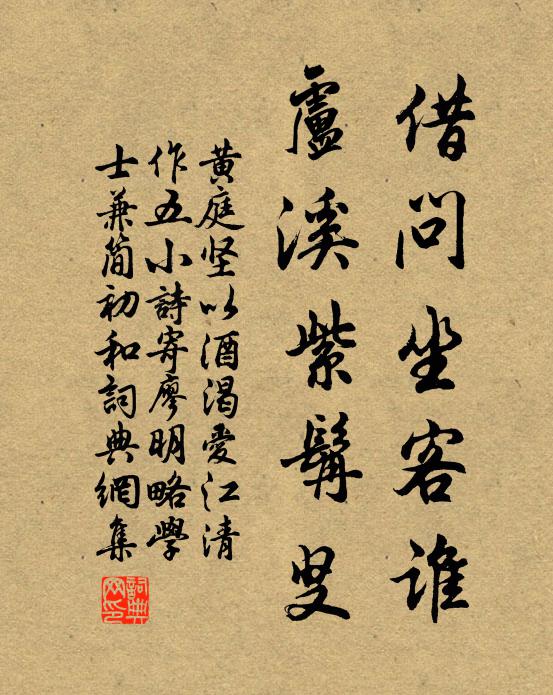 借問坐客誰
盧溪紫髯叟
黄庭坚以酒渴愛江清
作五小詩寄廖明略學
士兼簡初和詞典網集
詞典
网印